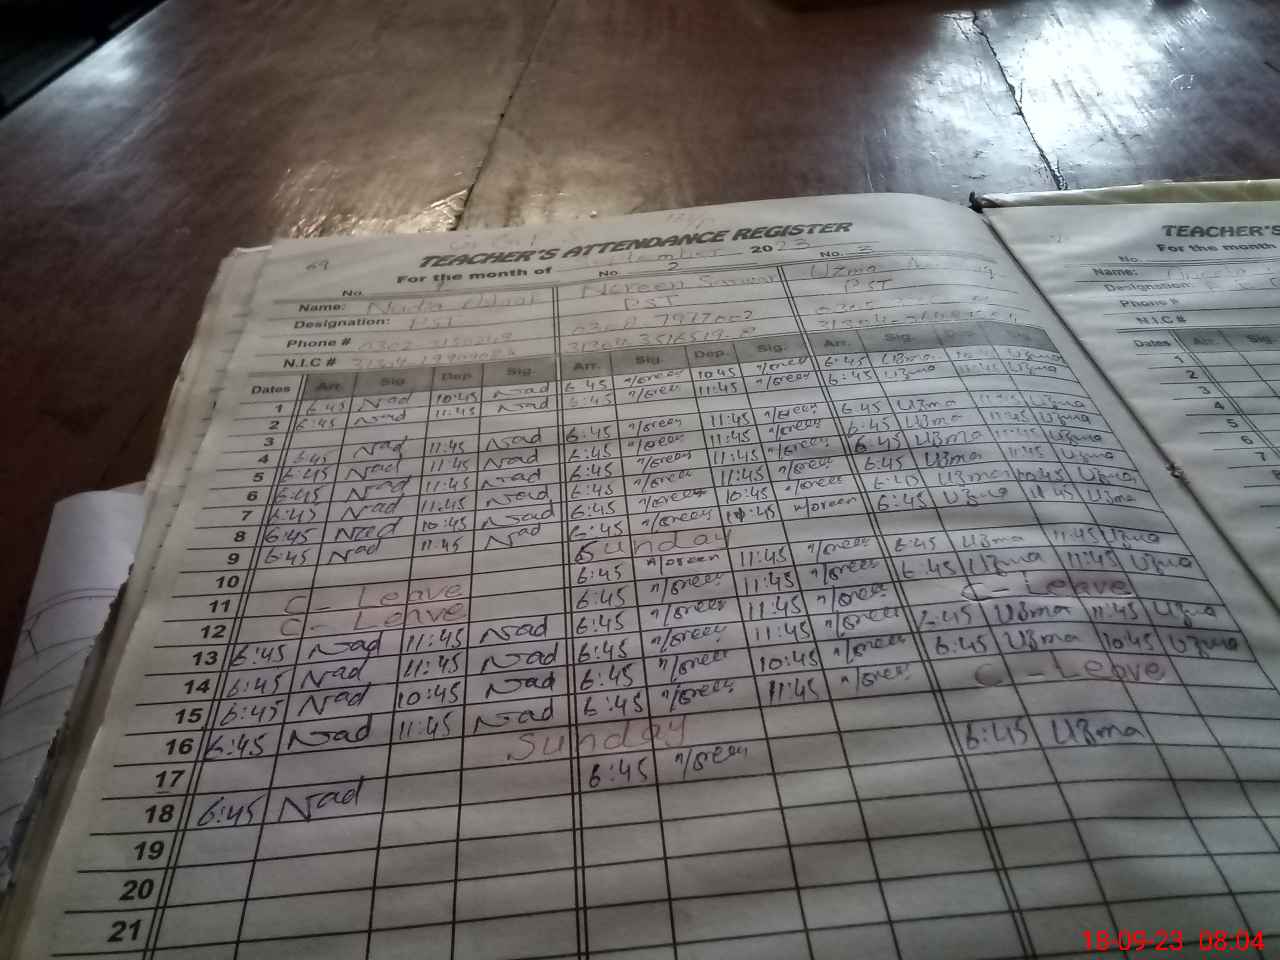 TEACHER'S ATTENDANCE REGISTER
For the month of 2023
69
No. No. 2 No. 3
Name: Nadia Noreen Sarwar Uzma
Designation: PST PST PST
Phone # 0302 0308 7917002
N.I.C #
Dates Arr. Sig. Dep. Sig. Arr. Sig. Dep. Sig. Arr. Sig. Dep. Sig.
1 6:45 Nad 10:45 Nad 6:45 n/oreen 10:45 n/oreen 6:45 Uzma 10:45 Uzma
2 6:45 Nad 11:45 Nad 6:45 n/oreen 11:45 n/oreen 6:45 Uzma 11:45 Uzma
3
4 6:45 Nad 11:45 Nad 6:45 n/oreen 11:45 n/oreen 6:45 Uzma 11:45 Uzma
5 6:45 Nad 11:45 Nad 6:45 n/oreen 11:45 n/oreen 6:45 Uzma 11:45 Uzma
6 6:45 Nad 11:45 Nad 6:45 n/oreen 11:45 n/oreen 6:45 Uzma 11:45 Uzma
7 6:45 Nad 11:45 Nad 6:45 n/oreen 11:45 n/oreen 6:45 Uzma 11:45 Uzma
8 6:45 Nad 10:45 Nad 6:45 n/oreen 10:45 n/oreen 6:45 Uzma 10:45 Uzma
9 6:45 Nad 11:45 Nad 6:45 n/oreen 11:45 n/oreen 6:45 Uzma 11:45 Uzma
10 Sunday
11 C - Leave 6:45 n/oreen 11:45 n/oreen 6:45 Uzma 11:45 Uzma
12 C - Leave 6:45 n/oreen 11:45 n/oreen 6:45 Uzma 11:45 Uzma
13 6:45 Nad 11:45 Nad 6:45 n/oreen 11:45 n/oreen C - Leave
14 6:45 Nad 11:45 Nad 6:45 n/oreen 11:45 n/oreen 6:45 Uzma 11:45 Uzma
15 6:45 Nad 10:45 Nad 6:45 n/oreen 10:45 n/oreen 6:45 Uzma 10:45 Uzma
16 6:45 Nad 11:45 Nad 6:45 n/oreen 11:45 n/oreen C - Leave
17 Sunday
18 6:45 Nad 6:45 n/oreen 6:45 Uzma
19
20
21
TEACHER'S
For the month
No.
Name:
Designation:
Phone #
N.I.C #
Dates Arr. Sig.
1
2
3
4
5
6
7
18-09-23 08:04